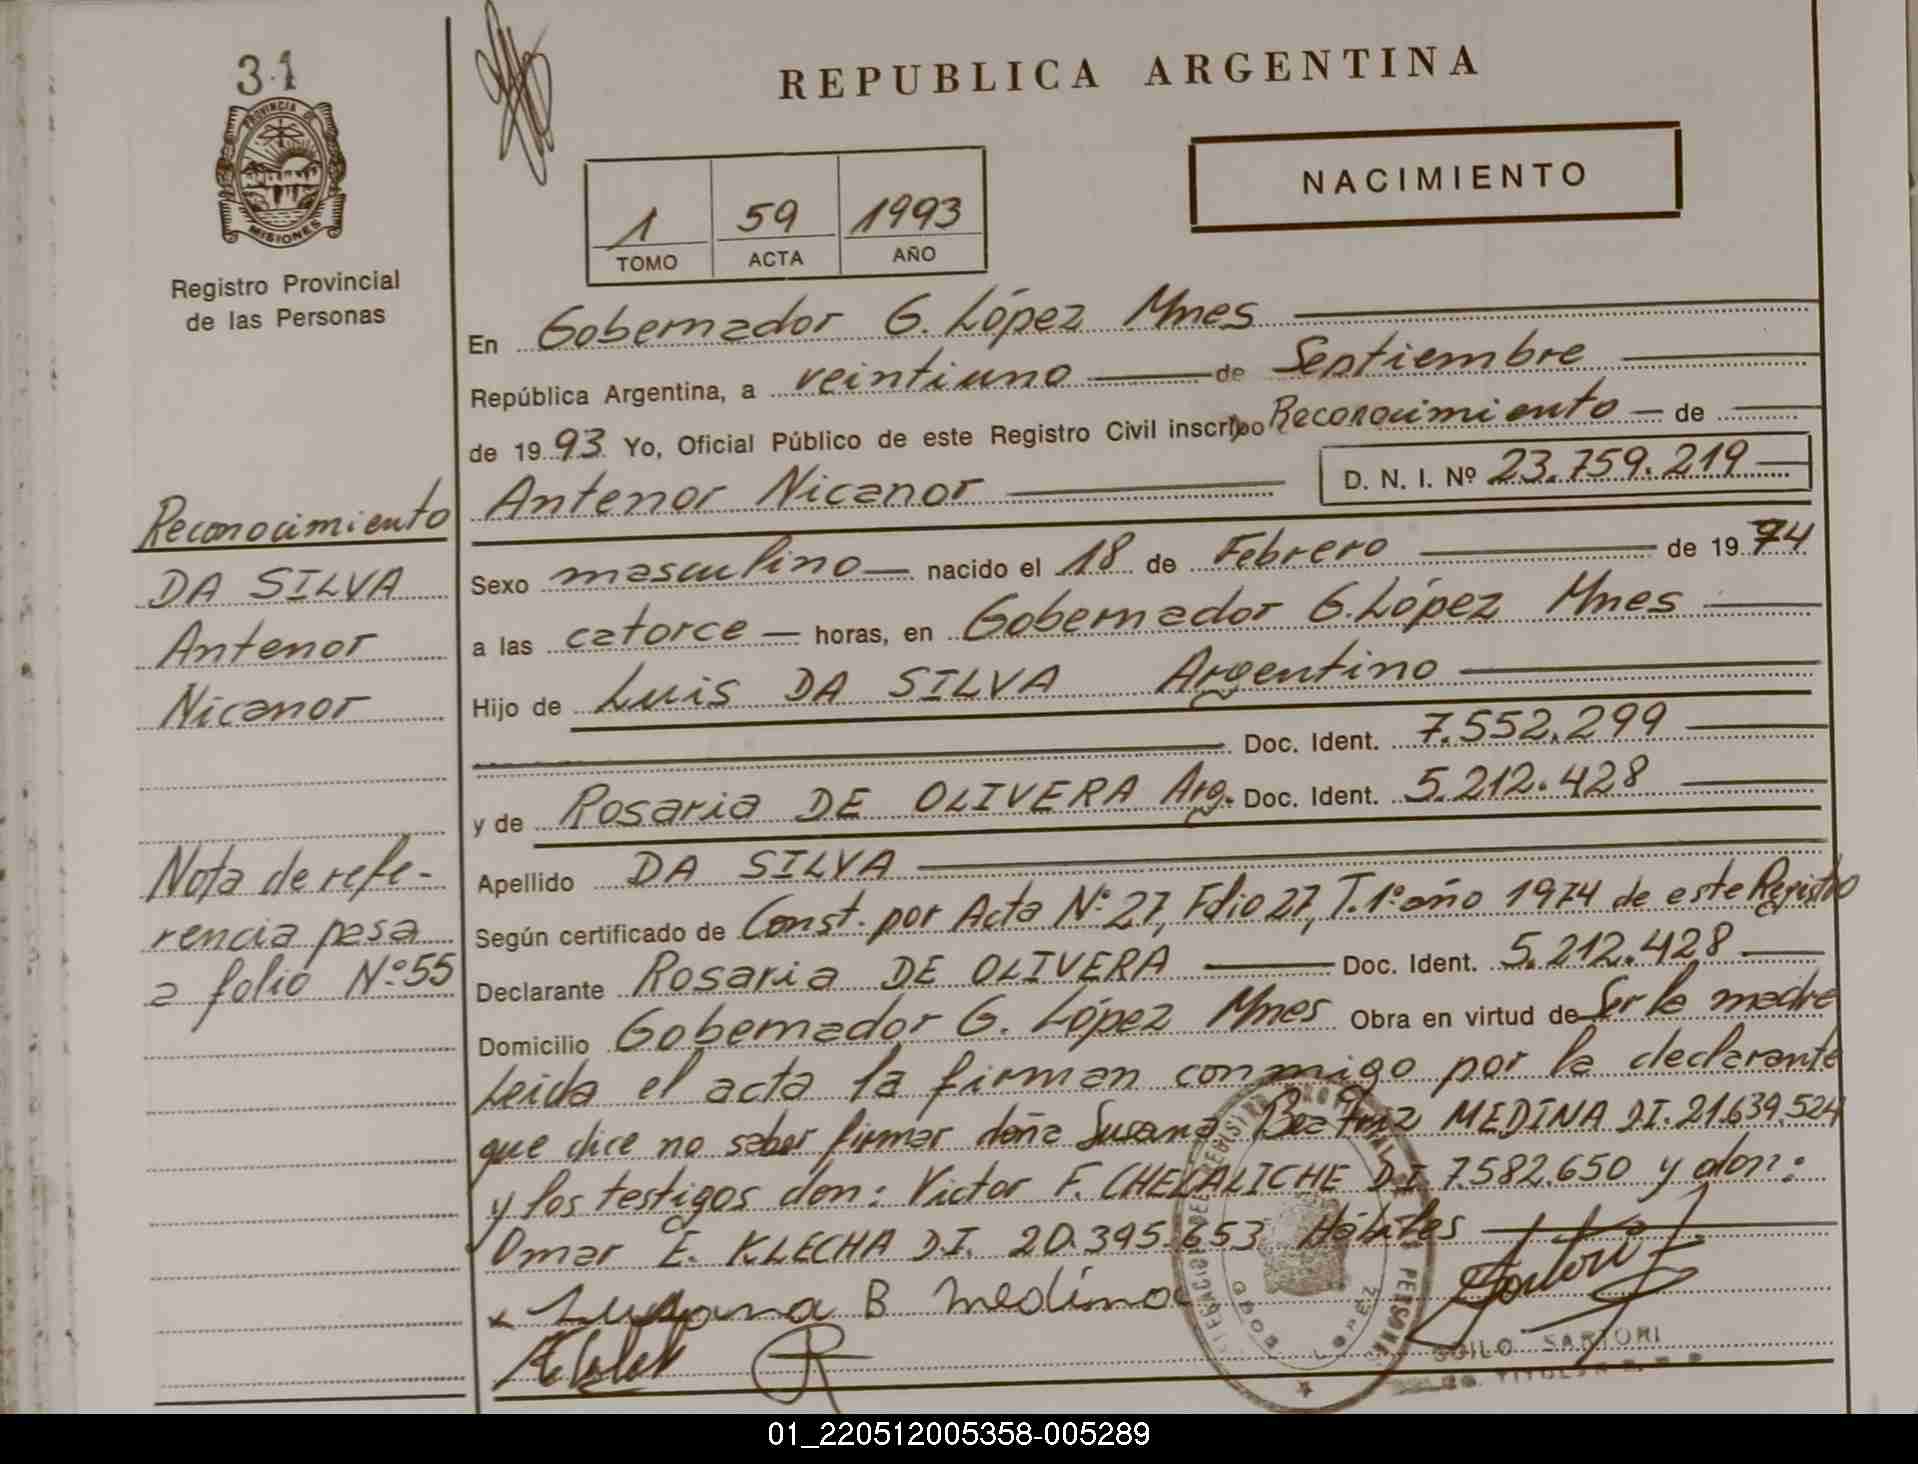 31
PROVINCIA DE
MISIONES
Registro Provincial
de las Personas
REPUBLICA ARGENTINA
NACIMIENTO
1 59 1993
TOMO ACTA AÑO
En Gobernador G. López Mnes
República Argentina, a veintiuno de Septiembre
de 1993 Yo, Oficial Público de este Registro Civil inscribo Reconocimiento de
Antenor Nicanor D. N. I. Nº 23.759.219
Sexo masculino nacido el 18 de Febrero de 1974
a las catorce horas, en Gobernador G. López Mnes
Hijo de Luis DA SILVA Argentino
Doc. Ident. 7.552.299
y de Rosaria DE OLIVERA Arg. Doc. Ident. 5.212.428
Apellido DA SILVA
Según certificado de Const. por Acta Nº 27, Folio 27, T. 1º año 1974 de este Registro
Declarante Rosaria DE OLIVERA Doc. Ident. 5.212.428
Domicilio Gobernador G. López Mnes Obra en virtud de Ser la madre
Leida el acta la firman conmigo por la declarante
que dice no saber firmar doña Susana Beatriz MEDINA DI. 21.639.524
y los testigos don: Victor F. CHECALICHE D.I 7.582.650 y don:
Omar E. KLECHA D.I. 20.395.653 Hábiles
Susana B Medina
SARTORI
Reconocimiento
DA SILVA
Antenor
Nicanor
Nota de refe-
rencia pasa
a folio Nº 55
01_220512005358-005289